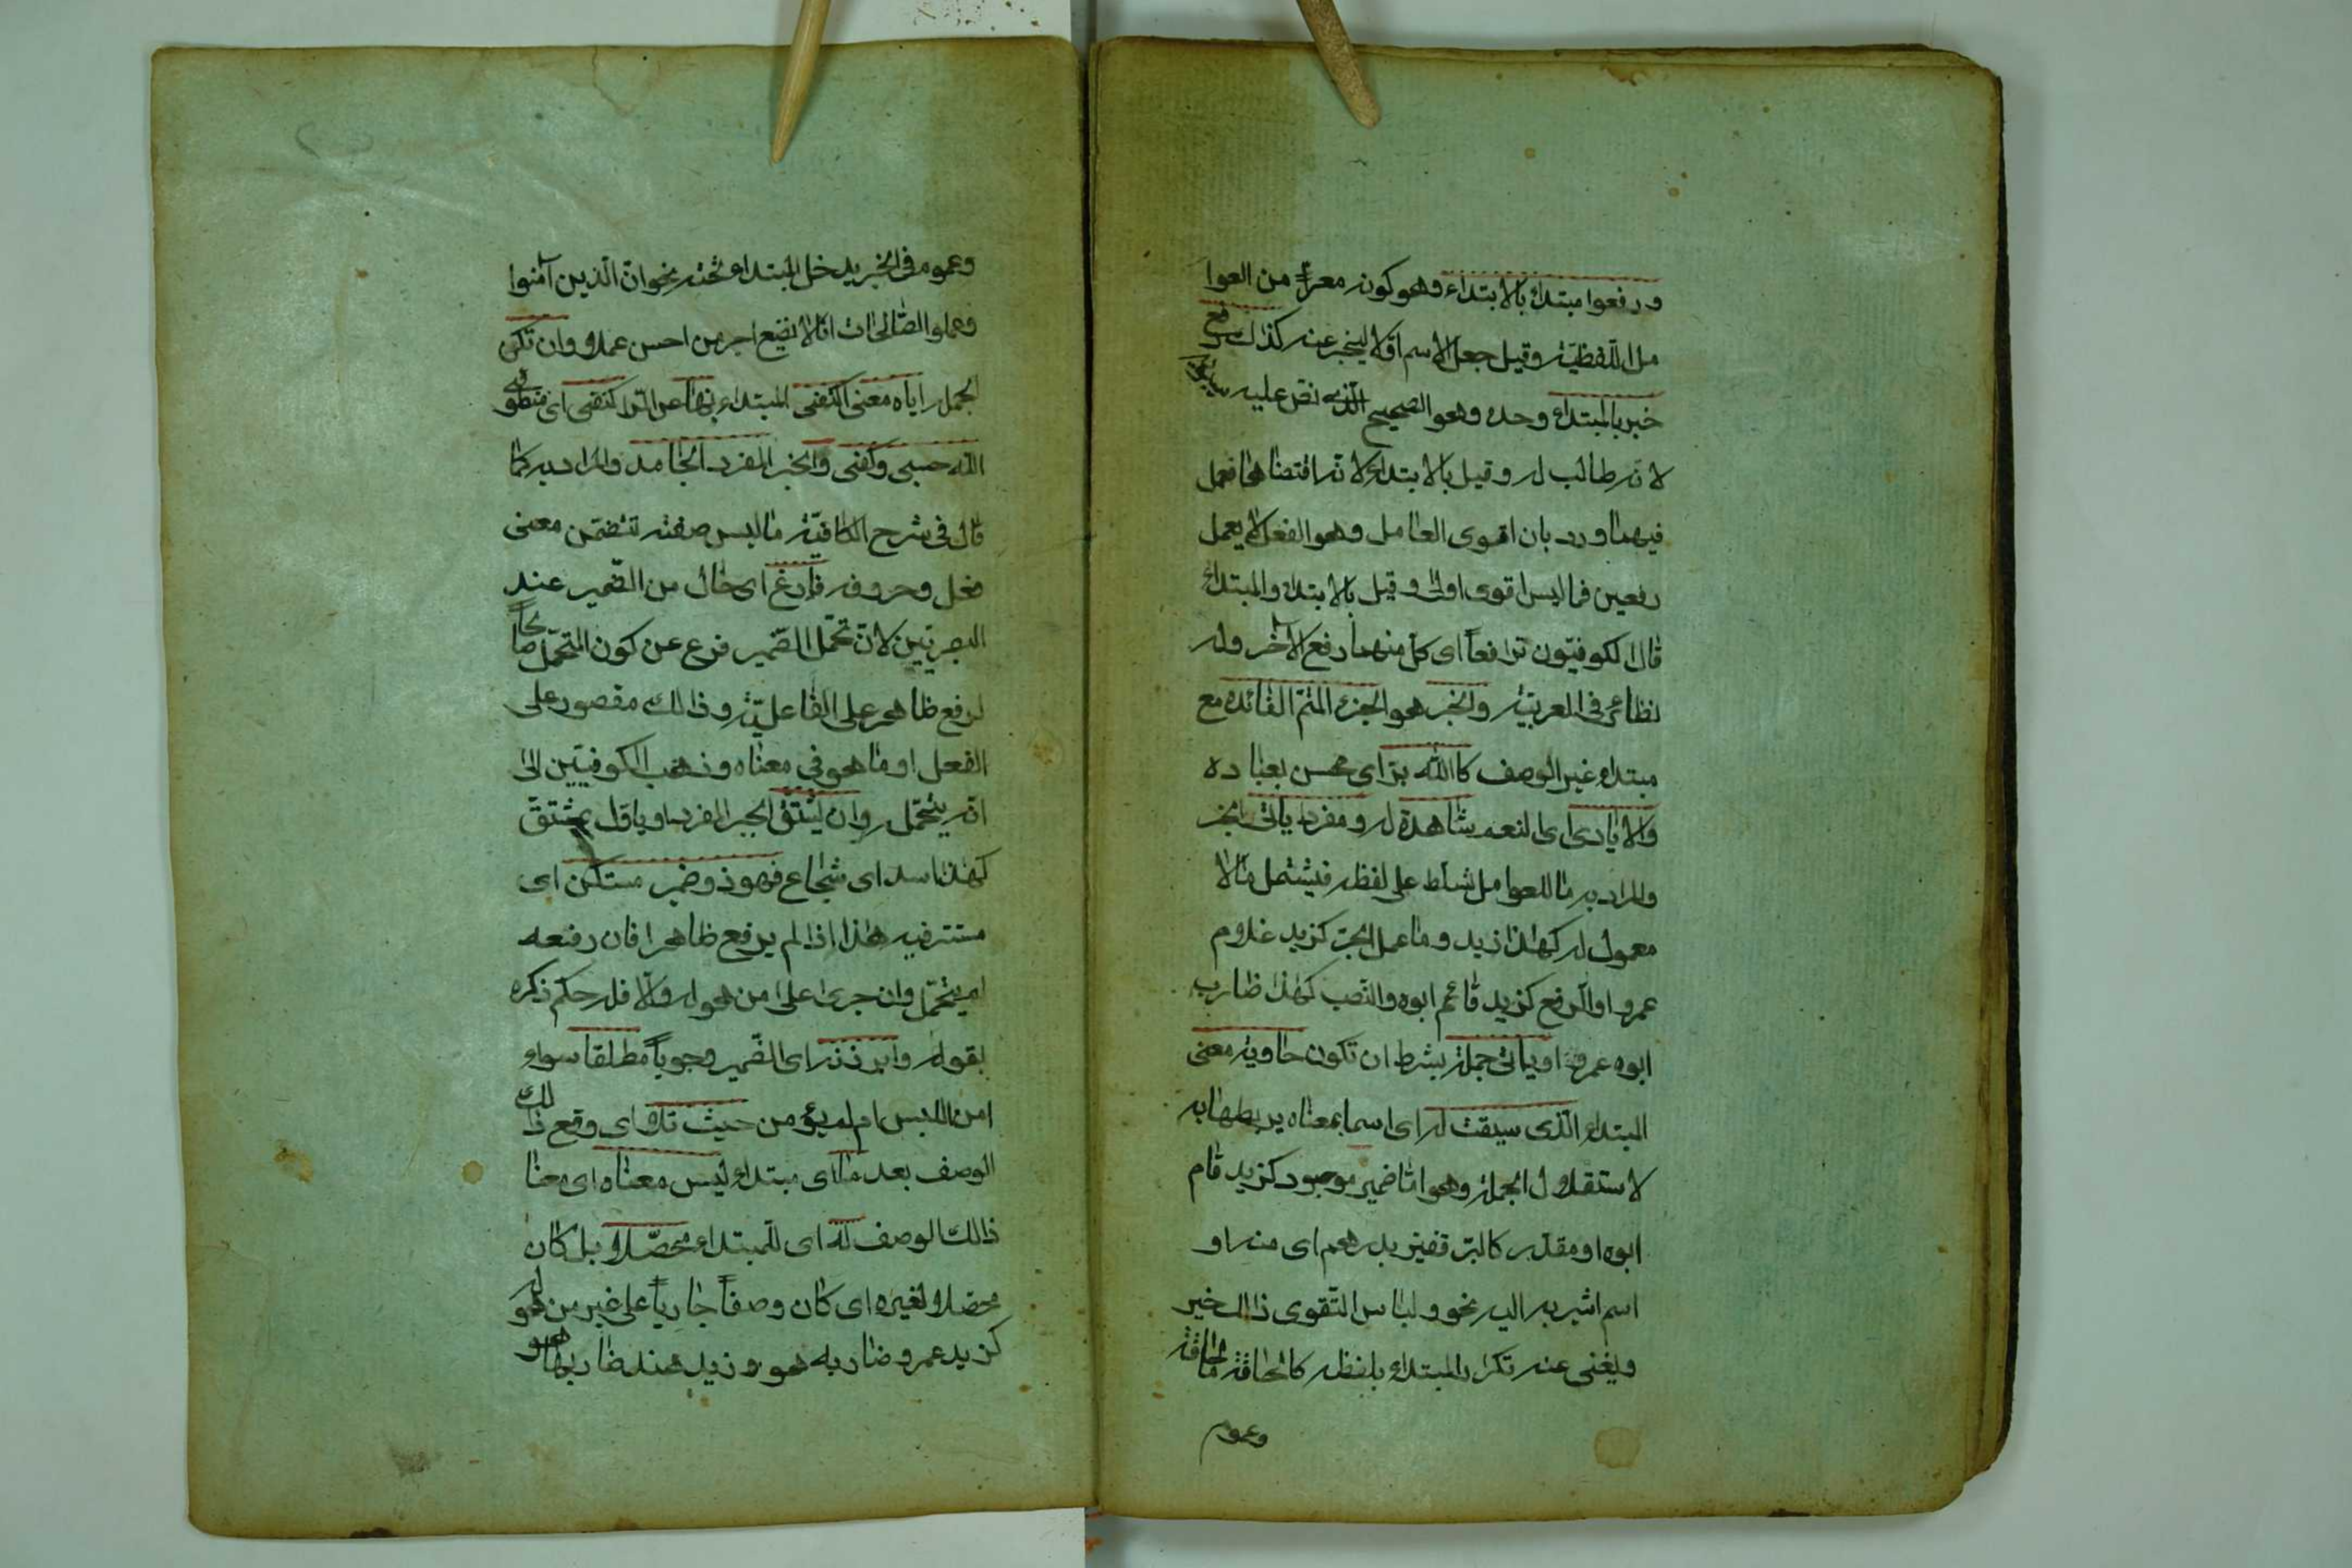 ورفعوا مبتدأ بالابتداء وهو كونه معرّاً من العوا
مل اللّفظيّة وقيل جعل الاسم اوّلا ليخبر عنه كذاك رفع
خبر بالمبتداء وحده وهو الصحيح الّذى نصّ عليه سيبويه
لانّه طالب له وقيل بالابتداء لانّه اقتضاهما فعمل
فيهما ورد بان اقوى العامل وهو الفعل لا يعمل
رفعين فما ليس اقوى اولى وقيل بالابتداء والمبتداء
قال الكوفيّون ترافعاً اى كلّ منهما رفع الآخر وله
نظائر فى العربيّة والخبر هو الجزء المتمّ الفائده مع
مبتداء غير الوصف كالله برّ اى محسن بعباده
والايادى اى النعم شاهدة له ومفردا يأتى الخبر
والمراد به ما للعوامل تسلّط على لفظه فيشتمل مالا
معمول له كهذا زيد وما عمل الجرّ كزيد غلام
عمرو او الرفع كزيد قائم ابوه والنّصب كهذا ضارب
ابوه عمرو او يأتى جملة بشرط ان تكون حاوية معنى
المبتداء الّذى سيقت له اى اسما بمعناه يربطها به
لاستقلال الجملة وهو امّا ضمير موجود كزيد قام
ابوه او مقدّر كالبرّ قفيز بدرهم اى منه او
اسم اشير به اليه نحو ولباس التّقوى ذالك خير
ويغنى عنه تكرار المبتداء بلفظه كالحاقّة ماالحاقّة
وعموم
وعموم فى الخبر يدخل المبتداء تحته نحو انّ الّذين آمنوا
وعملوا الصّالحات انّا لا نضيع اجر من احسن عملا وان تكن
الجملة ايّاه معنى اكتفى المبتداء بها عن الرّابط كنطقى اى منطوقى
الله حسبى وكفى والخبر المفرد الجامد والمراد به كما
قال فى شرح الكافيّة ما ليس صفته تتضمّن معنى
فعل وحروفه فارغ اى خال من الضّمير عند
البصريّين لانّ تحمّل الضّمير فرع عن كون المتحمّل صالحاً
لرفع ظاهر على الفاعليّة وذالك مقصور على
الفعل او ما هو فى معناه وذهب الكوفيّين الى
انّه يتحمّله وان يشتقّ الخبر المفرد او يأوّل بمشتقّ
كهذا اسد اى شجاع فهو ذو ضمير مستكن اى
مستتر فيه هذا اذا لم يرفع ظاهرا فان رفعه
لم يتحمّل وان جرى على من هو له والّا فله حكم ذكره
بقوله وابرزنه اى الضّمير وجوباً مطلقا سواء
امن اللبس ام لم يؤمن حيث تلا اى وقع ذالك
الوصف بعد ما اى مبتداء ليس معناه اى معنا
ذالك الوصف له اى للمبتداء محصّلا بل كان
محصلا لغيره اى كان وصفاً جارياً على غير من هو له
كزيد عمرو ضاربه هو وزيد هند ضاربها هو